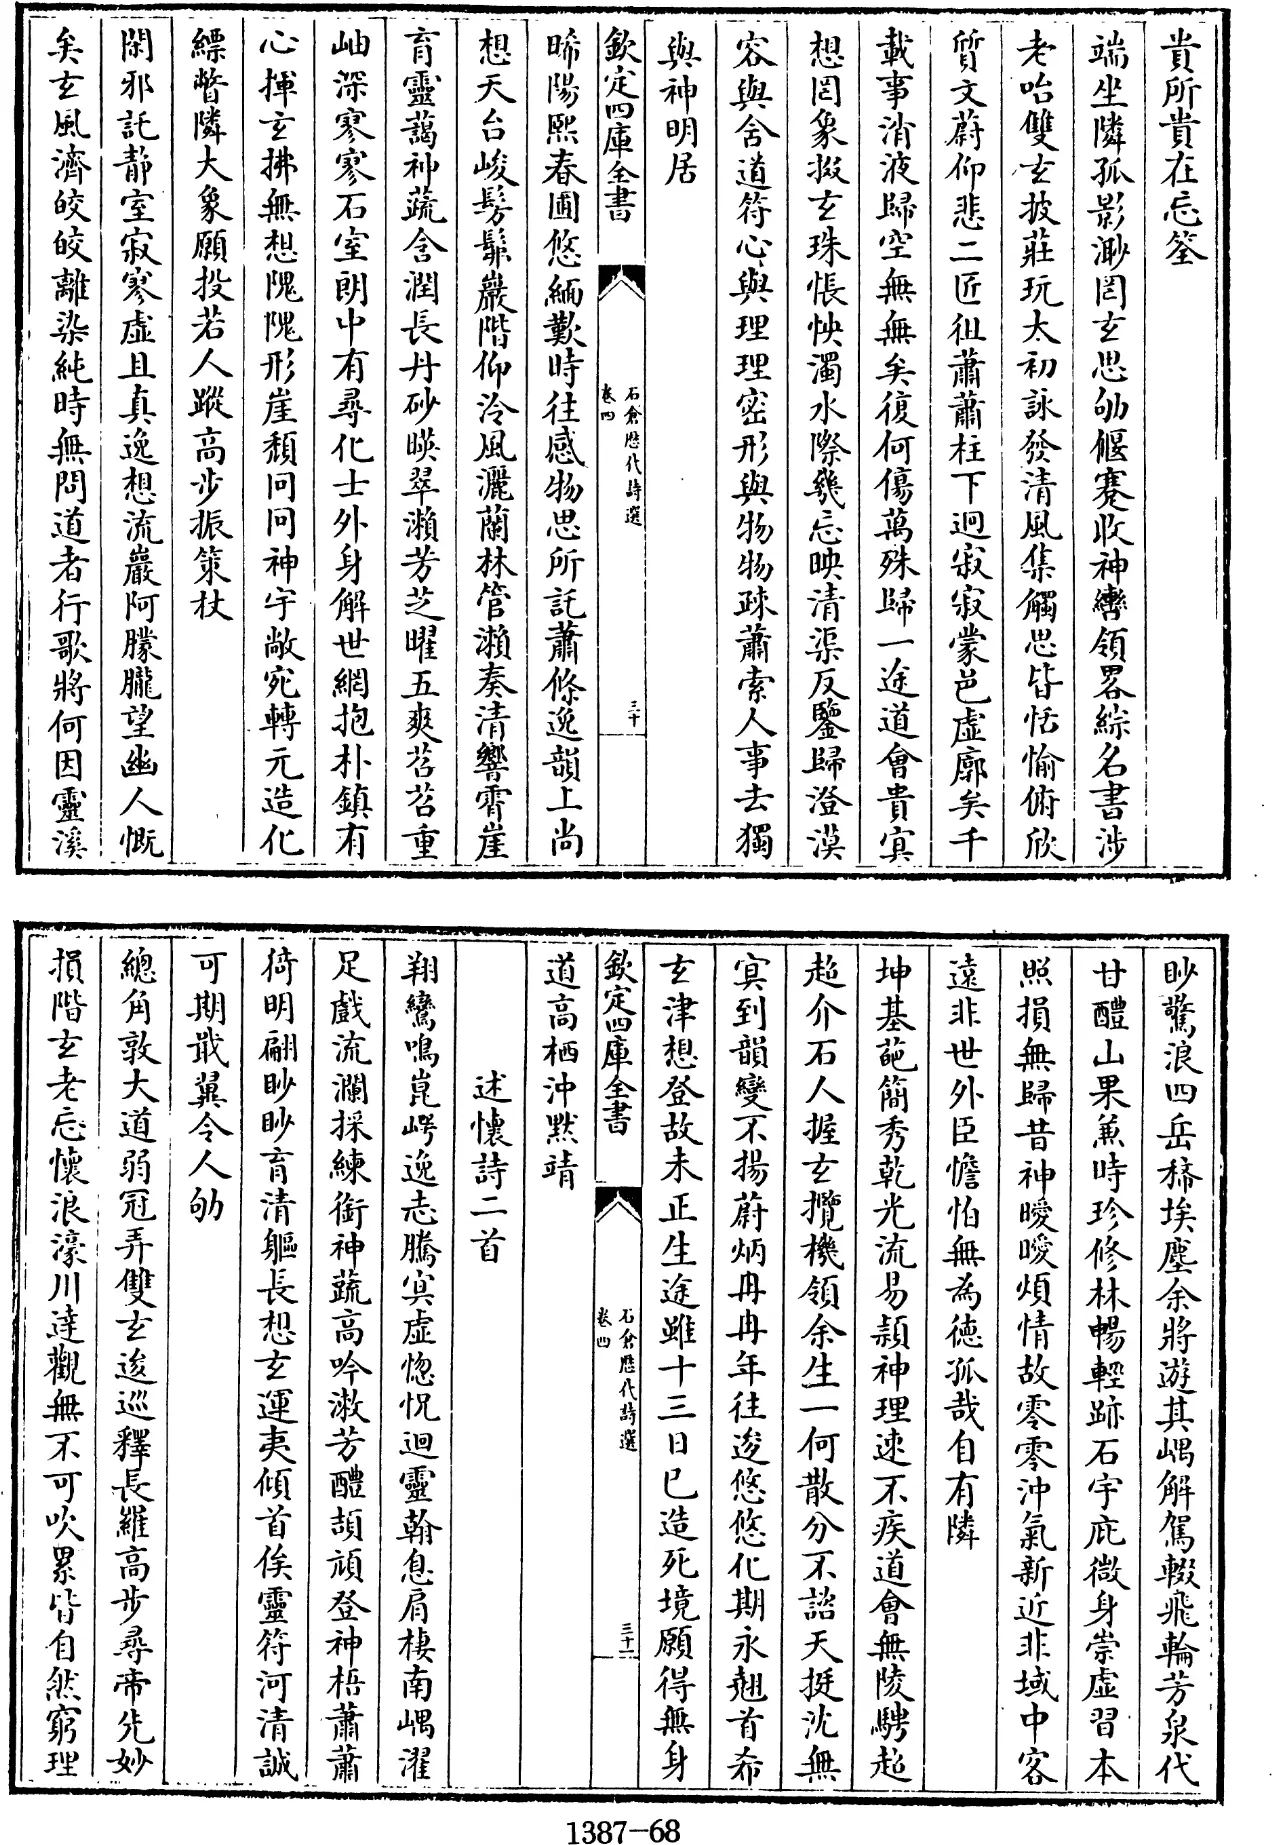 貴所貴在忘筌
端坐隣孤影渺罔玄思劬偃蹇收神轡領畧綜名書涉
老咍雙玄披莊玩太初詠發清風集觸思皆恬愉俯欣
質文蔚仰悲二匠徂蕭蕭柱下迥寂寂蒙邑虛廓矣千
載事消液歸空無無矣復何傷萬殊歸一途道會貴冥
想罔象掇玄珠悵怏濁水際幾忘映清渠反鑒歸澄漠
容與舍道符心與理理密形與物物疎蕭索人事去獨
與神明居
欽定四庫全書
石倉歷代詩選
卷四
三十
晞陽熙春圃悠緬歎時往感物思所託蕭條逸韻上尚
想天台峻髣髴巖階仰泠風灑蘭林管瀨奏清響霄崖
育靈藹神蔬含潤長丹砂暎翠瀨芳芝曜五爽苕苕重
岫深寥寥石室朗中有尋化士外身解世網抱朴鎮有
心揮玄拂無想隗隗形崖頹冋冋神宇敞宛轉元造化
縹瞥隣大象願投若人蹤高步振策杖
閑邪託静室寂寥虛且真逸想流巖阿朦朧望幽人慨
矣玄風濟皎皎離染純時無問道者行歌將何因靈溪
眇驚浪四岳稀埃塵余將遊其嵎解駕輟飛輪芳泉代
甘醴山果兼時珍修林暢輕跡石宇庇微身崇虛習本
照損無歸昔神曖曖煩情故零零沖氣新近非域中客
遠非世外臣憺怕無為德孤哉自有隣
坤基葩簡秀乾光流易頴神理速不疾道會無陵騁超
超介石人握玄攬機領余生一何散分不諮天挺沈無
冥到韻變不揚蔚炳冉冉年往逡悠悠化期永翹首希
玄津想登故未正生途雖十三日已造死境願得無身
欽定四庫全書
石倉歷代詩選
卷四
三十一
道高栖沖黙靖
述懷詩二首
翔鸞鳴崑崿逸志騰冥虛惚怳迴靈翰息肩棲南嵎濯
足戲流瀾採練銜神蔬高吟漱芳醴頡頏登神梧蕭蕭
猗明翮眇眇育清軀長想玄運夷傾首俟靈符河清誠
可期戢翼令人劬
總角敦大道弱冠弄雙玄逡巡釋長羅高步尋帝先妙
損階玄老忘懷浪濠川達觀無不可吹累皆自然窮理
1387-68